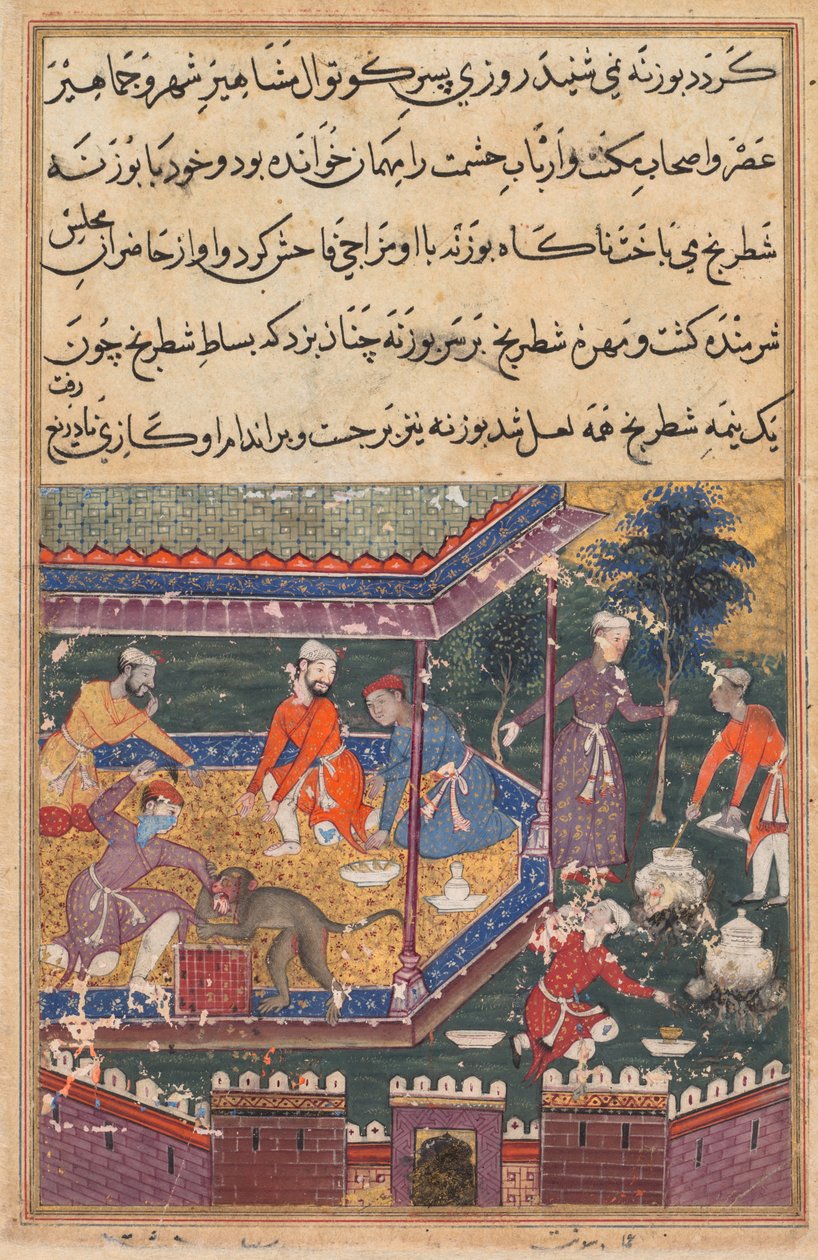 کردد بوزنه نمی شنید روزی پسر کوتوال مشاهیر شهر و جماهیر
عصر و اصحاب مکنت و ارباب حشمت را مهمان خوانده بود و خود با بوزنه
شطرنج می باخت ناکاه بوزنه با او مزاجی فاحش کرد و او از حاضران مجلس
شرمنده کشت و مهره شطرنج بر سر بوزنه چنان بزد که بساط شطرنج چون
یک نیمه شطرنج همه لعل شد بوزنه نیز برجست و بر اندام او کازی زد رفت